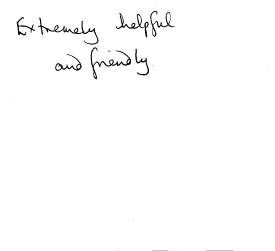 Extremely helpful
and friendly